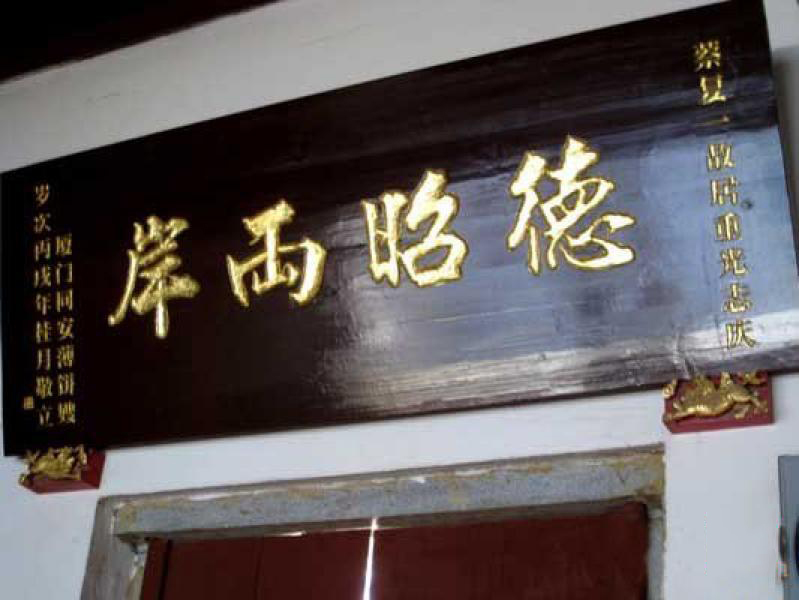 蔡复一故居重光志庆
德昭两岸
厦门同安薄饼嫂
岁次丙戌年桂月敬立